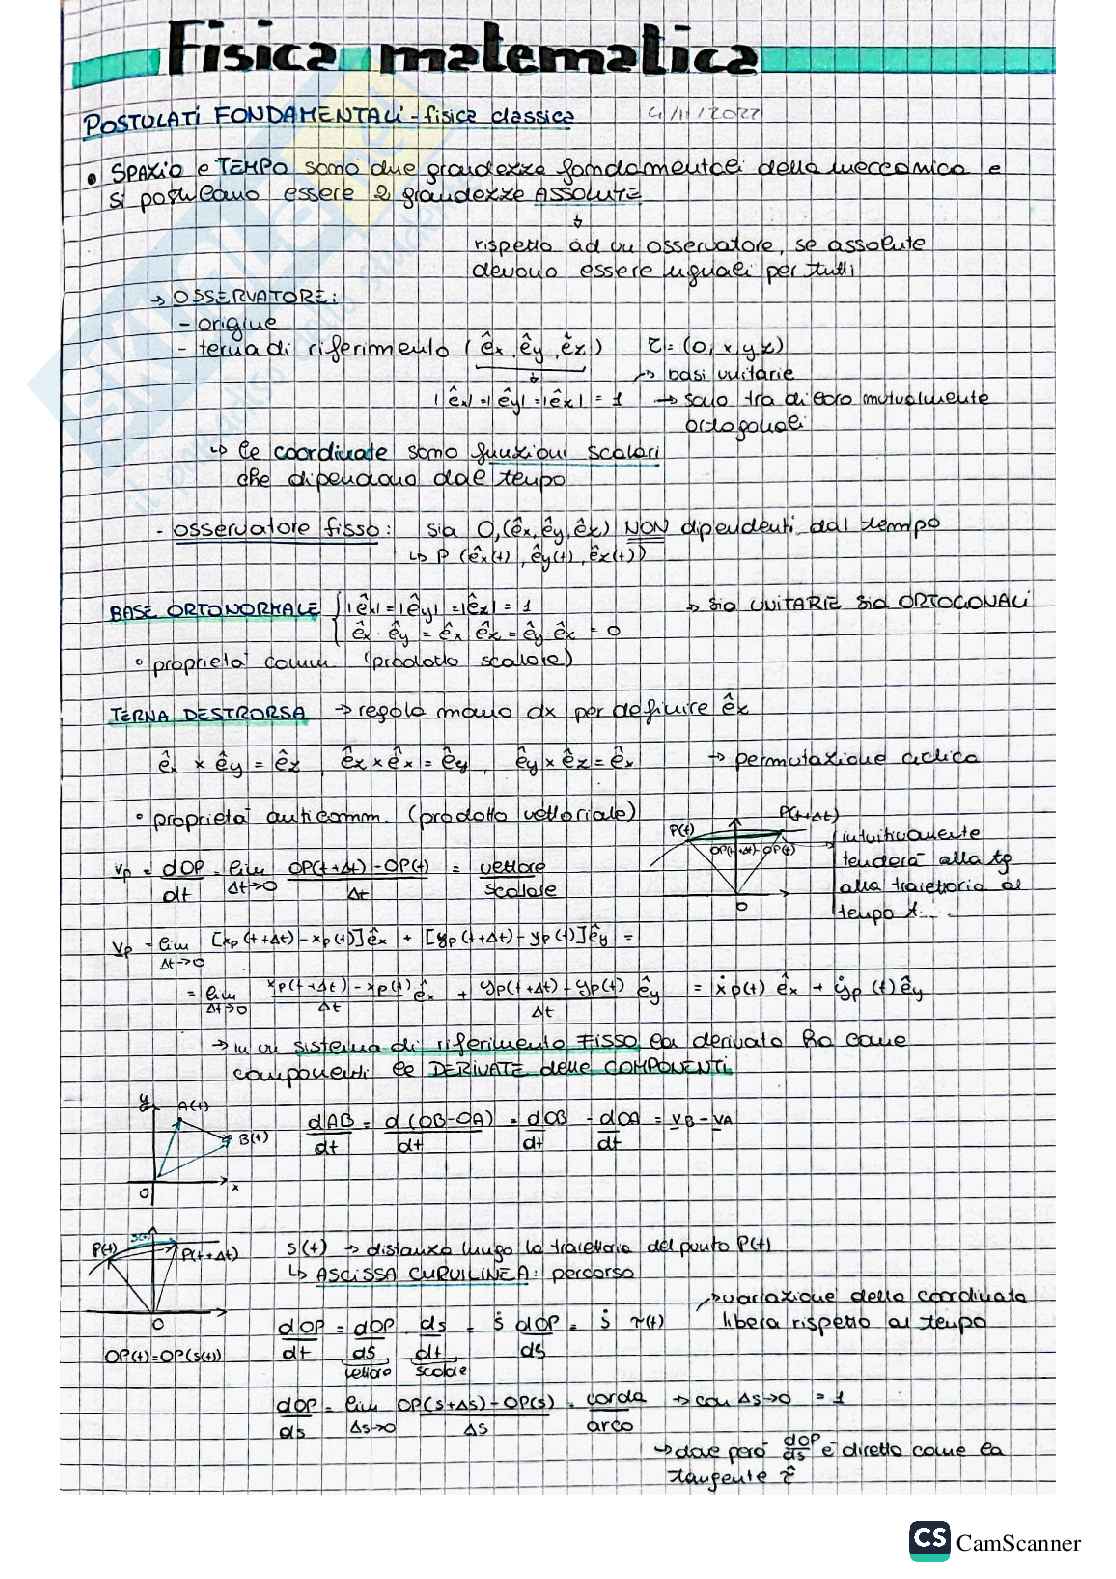 Fisica matematica
POSTULATI FONDAMENTALI - fisica classica 4/11/2022
• SPAZIO e TEMPO sono due grandezze fondamentali della meccanica e
si postulano essere 2 grandezze ASSOLUTE
↓
rispetto ad un osservatore, se assolute
devono essere uguali per tutti
→ OSSERVATORE:
- origine
- terna di riferimento (êx, êy, êz) τ = (0, x, y, z)
↳ basi unitarie
|êx| = |êy| = |êz| = 1 → sono tra di loro mutualmente
ortogonali
↳ le coordinate sono funzioni scalari
che dipendono dal tempo
- osservatore fisso: sia O, (êx, êy, êz) NON dipendenti dal tempo
↳ P (êx(t), êy(t), êz(t))
BASE ORTONORMALE { |êx| = |êy| = |êz| = 1 → sia UNITARIE sia ORTOGONALI
êx · êy = êx · êz = êy · êz = 0
• proprietà comm. (prodotto scalare)
TERNA DESTRORSA → regola mano dx per definire êz
êx × êy = êz, êz × êx = êy, êy × êz = êx → permutazione ciclica
• proprietà anticomm. (prodotto vettoriale)
P(t) P(t+Δt)
OP(t+Δt)-OP(t)
O
intuitivamente
tenderà alla tg
alla traiettoria al
tempo t...
vp = dOP/dt = lim Δt→0 (OP(t+Δt) - OP(t))/Δt = vettore/scalare
vp = lim Δt→0 [xp(t+Δt) - xp(t)]êx + [yp(t+Δt) - yp(t)]êy =
= lim Δt→0 (xp(t+Δt) - xp(t))/Δt êx + (yp(t+Δt) - yp(t))/Δt êy = ẋp(t) êx + ẏp(t) êy
→ in un sistema di riferimento FISSO la derivata ha come
componenti le DERIVATE delle COMPONENTI
y A(t) B(t) O x
dAB/dt = d(OB-OA)/dt = dOB/dt - dOA/dt = vB - vA
P(t) s(t) P(t+Δt)
O
OP(t) = OP(s(t))
s(t) → distanza lungo la traiettoria del punto P(t)
↳ ASCISSA CURVILINEA: percorso
→ variazione della coordinata
libera rispetto al tempo
dOP/dt = dOP/ds ds/dt = ṡ dOP/ds = ṡ τ(t)
vettore scalare
dOP/ds = lim Δs→0 (OP(s+Δs) - OP(s))/Δs = corda/arco → con Δs→0 = 1
→ dove però dOP/ds è diretto come la
tangente τ̂
CS CamScanner